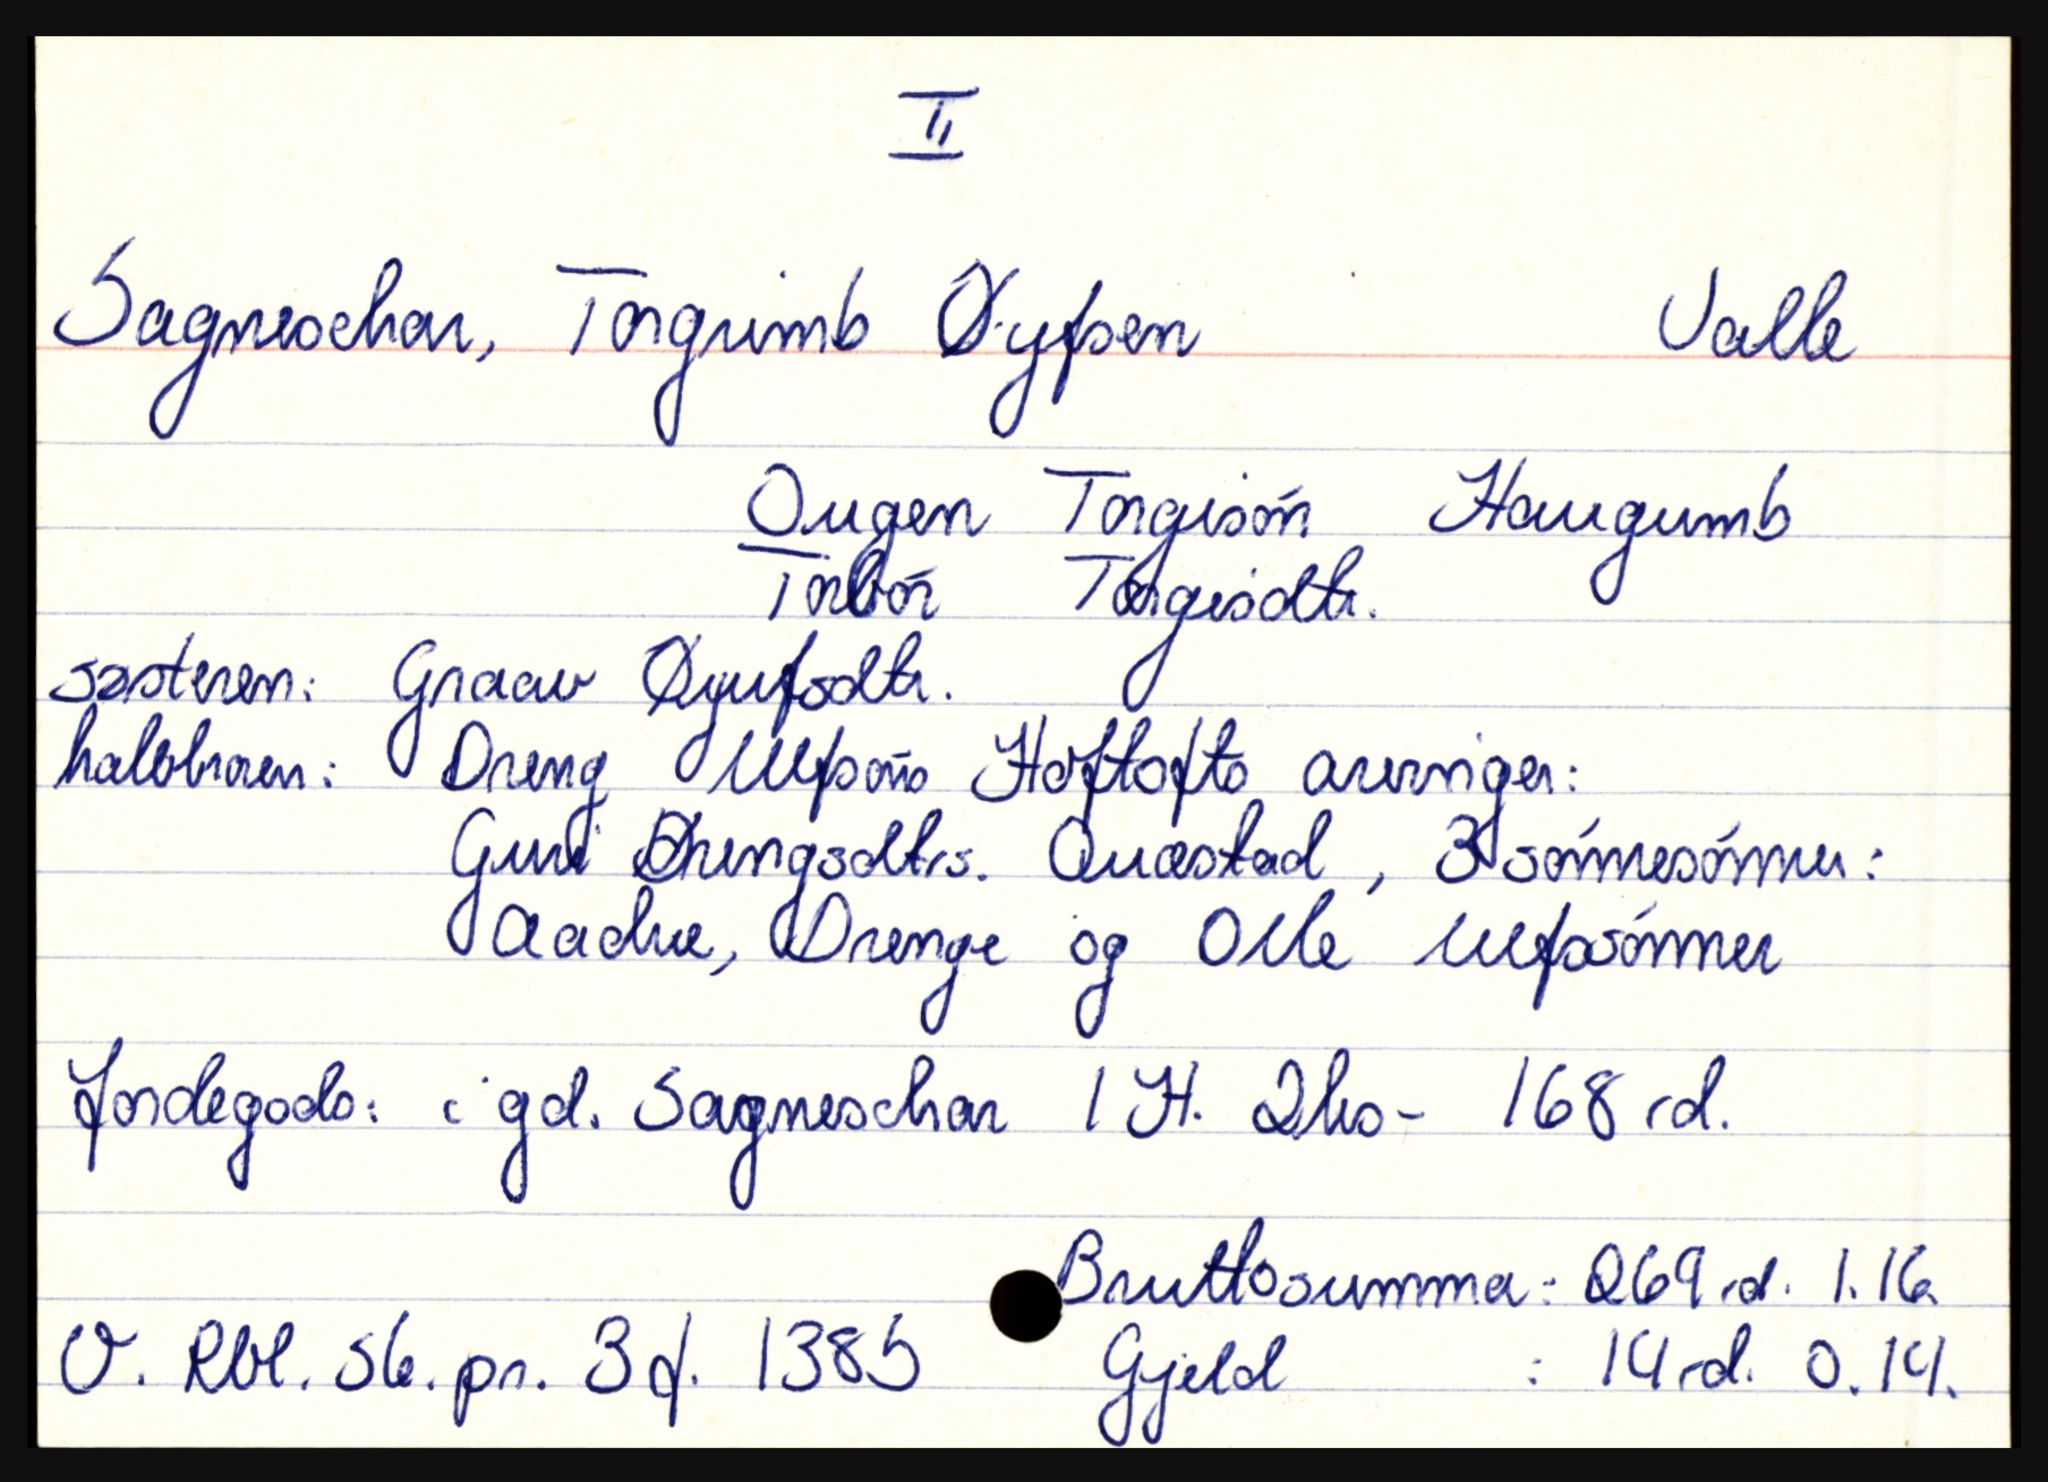 II
Sagneschar, Torgrimb Øyfsen Valle
Ougen Torgisön Haugumb
Torbör Torgisdtr.
søsteren: Graav Øyufsdtr.
halvbroren: Dreng Ulfsöns Hoftofts arvinger:
Guri Drengsdtrs. Quæstad, 3 sönnesönner:
Aadne, Drenge og Olle Ulfssönner
Jordegods: i gd. Sagneschar 1 H. 2ks- 168 rd.
Bruttosumma: 269 rd. 1.16.
V. Rbl. sk. pr. 3 f. 1385 Gjeld : 14 rd. 0.14.